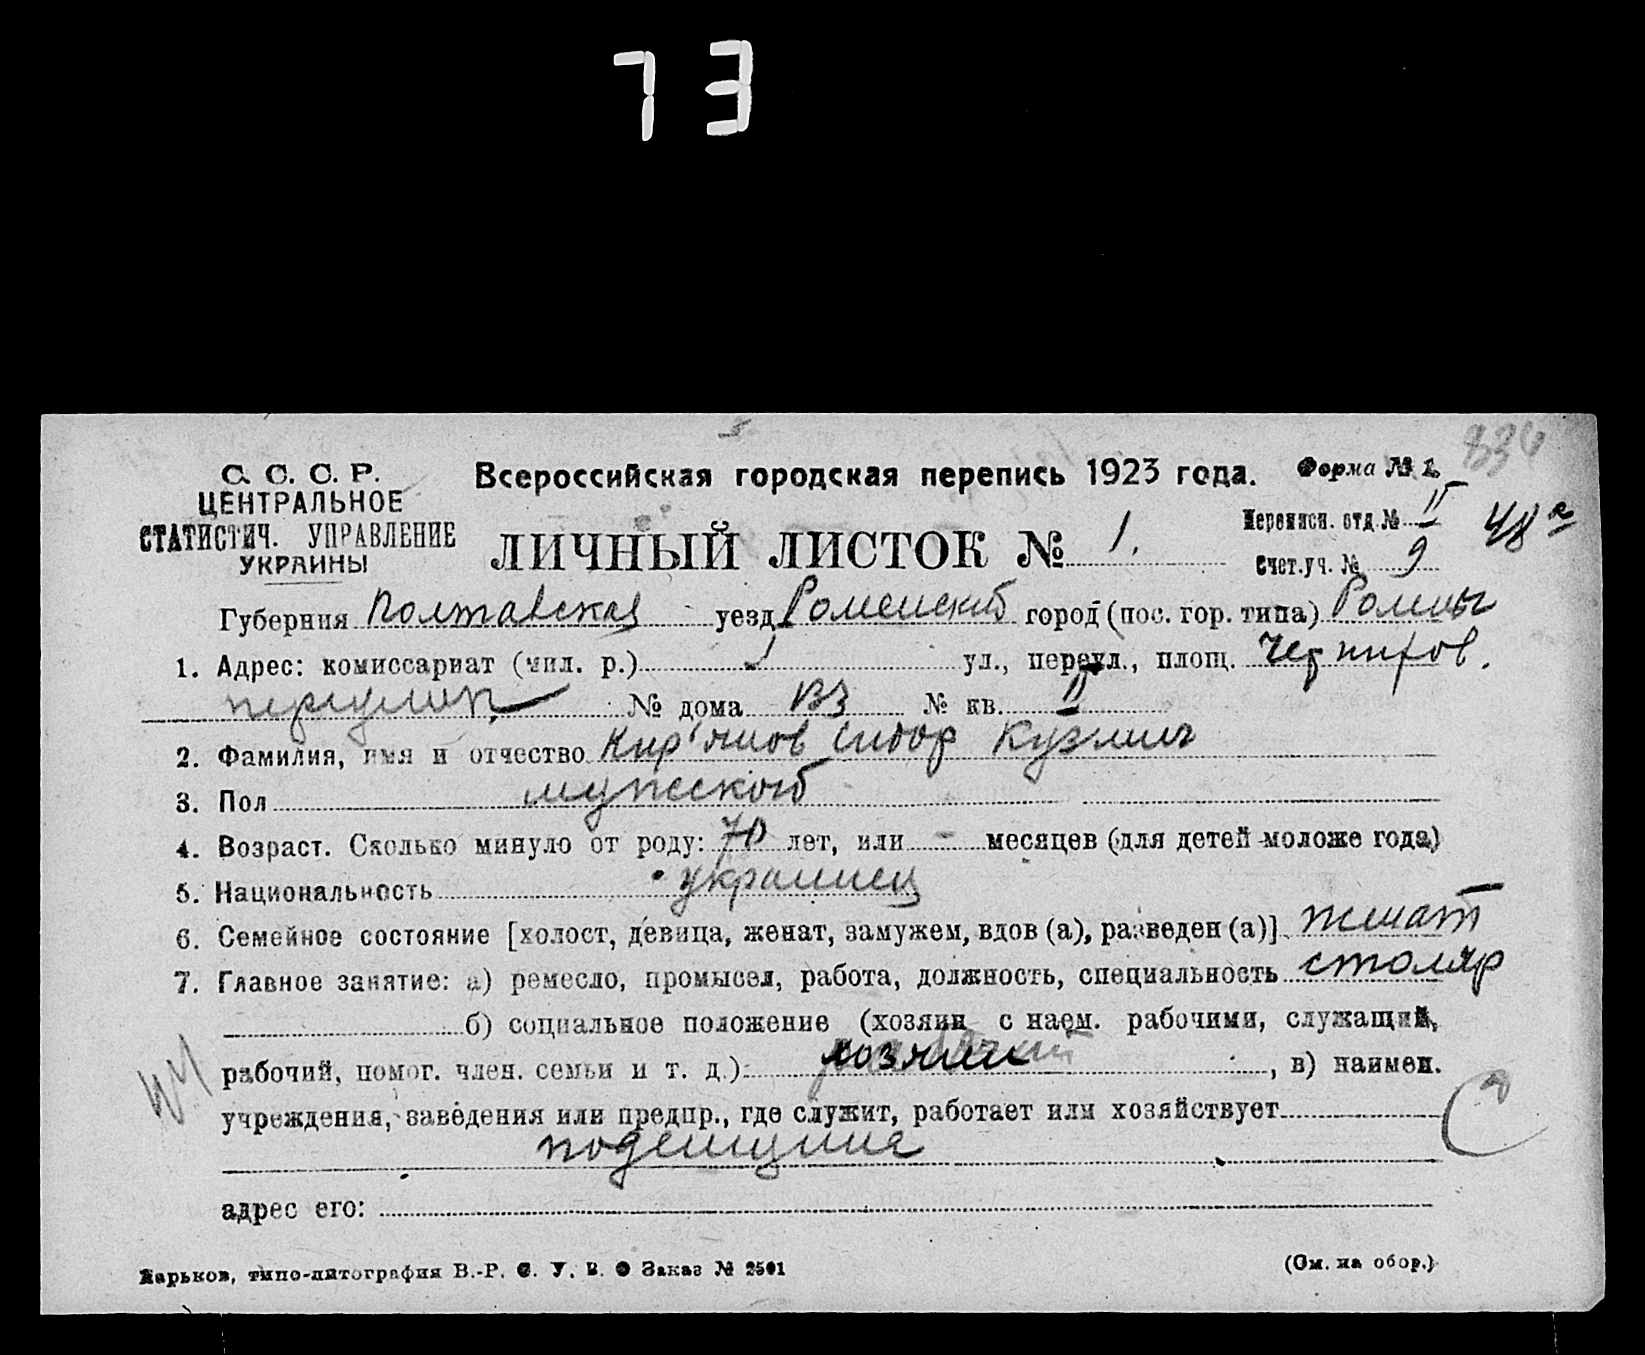 73
836
С. С. С. Р.
ЦЕНТРАЛЬНОЕ
СТАТИСТИЧ. УПРАВЛЕНИЕ
УКРАИНЫ
Всероссийская городская перепись 1923 года. Форма № 1.
ЛИЧНЫЙ ЛИСТОК № 1.
Переписн. отд. № II
Счет. уч. № 9
48
Губерния Полтавская уезд Роменский город (пос. гор. типа) Ромны
1. Адрес: комиссариат (мил. р.) 1 ул., переул., площ. Чернигов.
переулок № дома № кв. II
2. Фамилия, имя и отчество Кир'янов Сидор Кузмич
3. Пол мужской
4. Возраст. Сколько минуло от роду: 70 лет, или - месяцев (для детей моложе года)
5. Национальность украинец
6. Семейное состояние [холост, девица, женат, замужем, вдов (а), разведен (а)] женат
7. Главное занятие: а) ремесло, промысел, работа, должность, специальность столяр
б) социальное положение (хозяин с наем. рабочими, служащий,
рабочий, помог. член. семьи и т. д.): хозяин, в) наимен.
учреждения, заведения или предпр., где служит, работает или хозяйствует
поденщина
С
адрес его:
Харьков, типо-литография В.-Р. С. У. В. О Заказ № 2501
(См. на обор.)